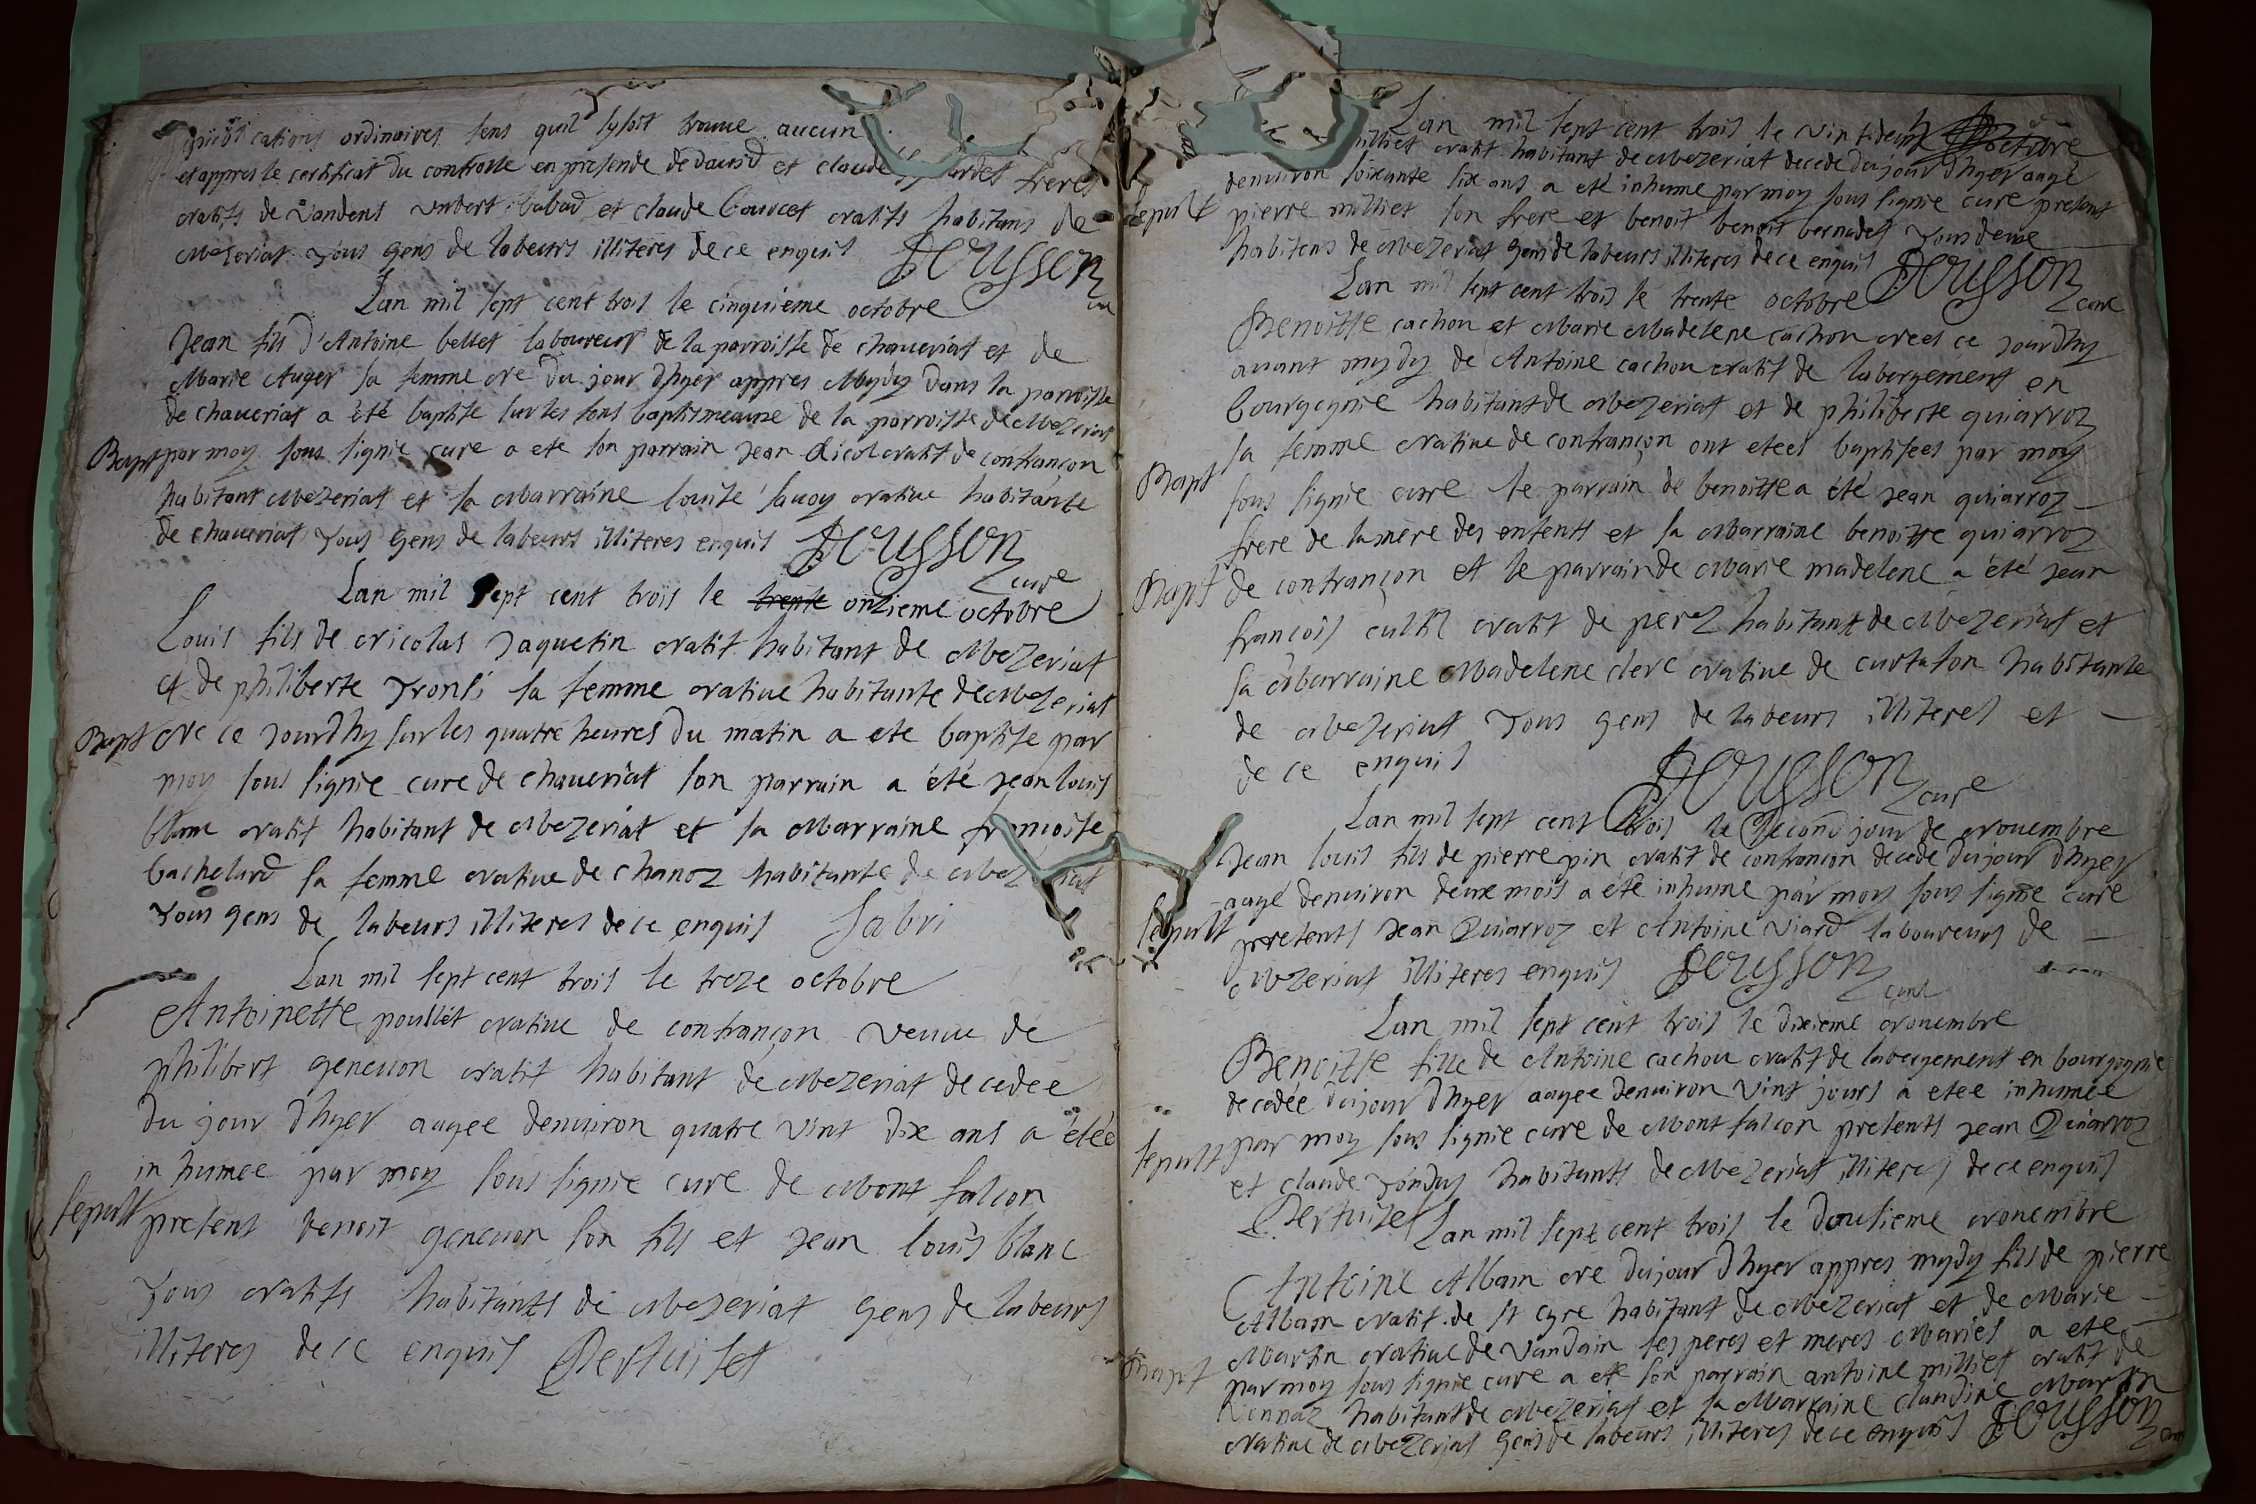 cations ordinaires sens quil sysoit trouue aucun
et appres le certificat du controlle en presende de dauid et claude freres
natifs de Vandens babad et claude bourcet natifs habitans de
Mezeriat Tous gens de labeurs illiteres de ce enquis
cure
Lan mil sept cent trois le cinquieme octobre
Jean fils d'Antoine bellet laboureur de la parroisse de chaueriat et de
Marie Auger sa femme ne du jour dhyer appres Mydy dans la parroisse
de chaueriat a été baptise sur les fons baptismeaux de la parroisse de Mezeriat
Bapt par moy sous signie cure a ete son parrain Jean Nicol natif de confrançon
habitant Mezeriat et sa Marraine louise sauoy natiue habitante
de chaueriat Tous gens de labeurs illiteres enquis
cure
Lan mil sept cent trois le trente onzieme octobre
Louis fils de nicolas Jaquetin natif habitant de Mezeriat
et de philiberte Tronsi sa femme natiue habitante de Mezeriat
Bapt ne ce jourdhy sur les quatre heures du matin a ete baptise par
moy sous signie cure de chaueriat son parrain a été Jean louis
blanc natif habitant de Mezeriat et sa Marraine francoise
bachelard sa femme natiue de chanoz habitante de Mezeriat
Tous gens de labeurs illiteres de ce enquis Sabri
Lan mil sept cent trois le treze octobre
Antoinette poullet natiue de confrançon veuue de
philibert geneuon natif habitant de Mezeriat decedee
du jour dhyer aagee denuiron quatre vint dix ans a étée
inhumee par moy sous signie cure de Mont falcon
sepult present benoit geneuon son fils et Jean louis blanc
Tous natifs habitants de Mezeriat gens de labeurs
illiteres de ce enquis Pertuiset
Lan mil sept cent trois le vint deux octobre
milliet natif habitant de Mezeriat decede du jour dhyer aage
denuiron soixante six ans a eté inhume par moy sous signie cure present
sepult pierre milliet son frere et benoit benoit bernadet Tous deux
habitens de Mezeriat gens de labeurs illiteres de ce enquis
cure
Lan mil sept cent trois le trente octobre
Benoitte cachou et Marie Madelene cachou nees ce jourdhy
auant mydy de Antoine cachou natif de labergement en
bourgognie habitant de Mezeriat et de philiberte quiarroz
sa femme natiue de confrançon ont etees baptisees par moy
Bapt sous signie cure le parrain de benoitte a été Jean quiarroz
frere de la mere des enfents et sa Marraine benoitte quiarroz
Bapt de confrançon et le parrain de Marie madelene a été Jean
françois natif de perez habitant de Mezeriat et
sa Marraine Madelene clerc natiue de curtason habitante
de Mezeriat Tous gens de labeurs illiteres et
de ce enquis
cure
Lan mil sept cent trois le second jour de nouembre
Jean louis fils de pierre pin natif de confrancon decede du jour dhyer
aagé denuiron deux mois a été inhume par moy sous signie cure
sepult presents Jean Quiarroz et Antoine Viard laboureurs de
Mezeriat illiteres enquis
cure
Lan mil sept cent trois le dixieme nouembre
Benoitte fille de Antoine cachou natif de labergement en bourgognie
decedée du jour dhyer aagee denuiron vint jours a etee inhumée
sepult par moy sous signie cure de Mont falcon presents Jean Quiarroz
et claude Tondus habitants de Mezeriat illiteres de ce enquis
Pertuiset
Lan mil sept cent trois le dousieme nouembre
Antoine Albam ne du jour dhyer appres mydy fils de pierre
Albam natif de st cyre habitant de Mezeriat et de Marie
Martin natiue de Vandain ses peres et meres Maries a ete
Bapt par moy sous signie cure a ete son parrain antoine milliet natif de
habitant de Mezeriat et sa Marraine claudine Martin
natiue de Mezeriat gens de labeurs illiteres de ce enquis